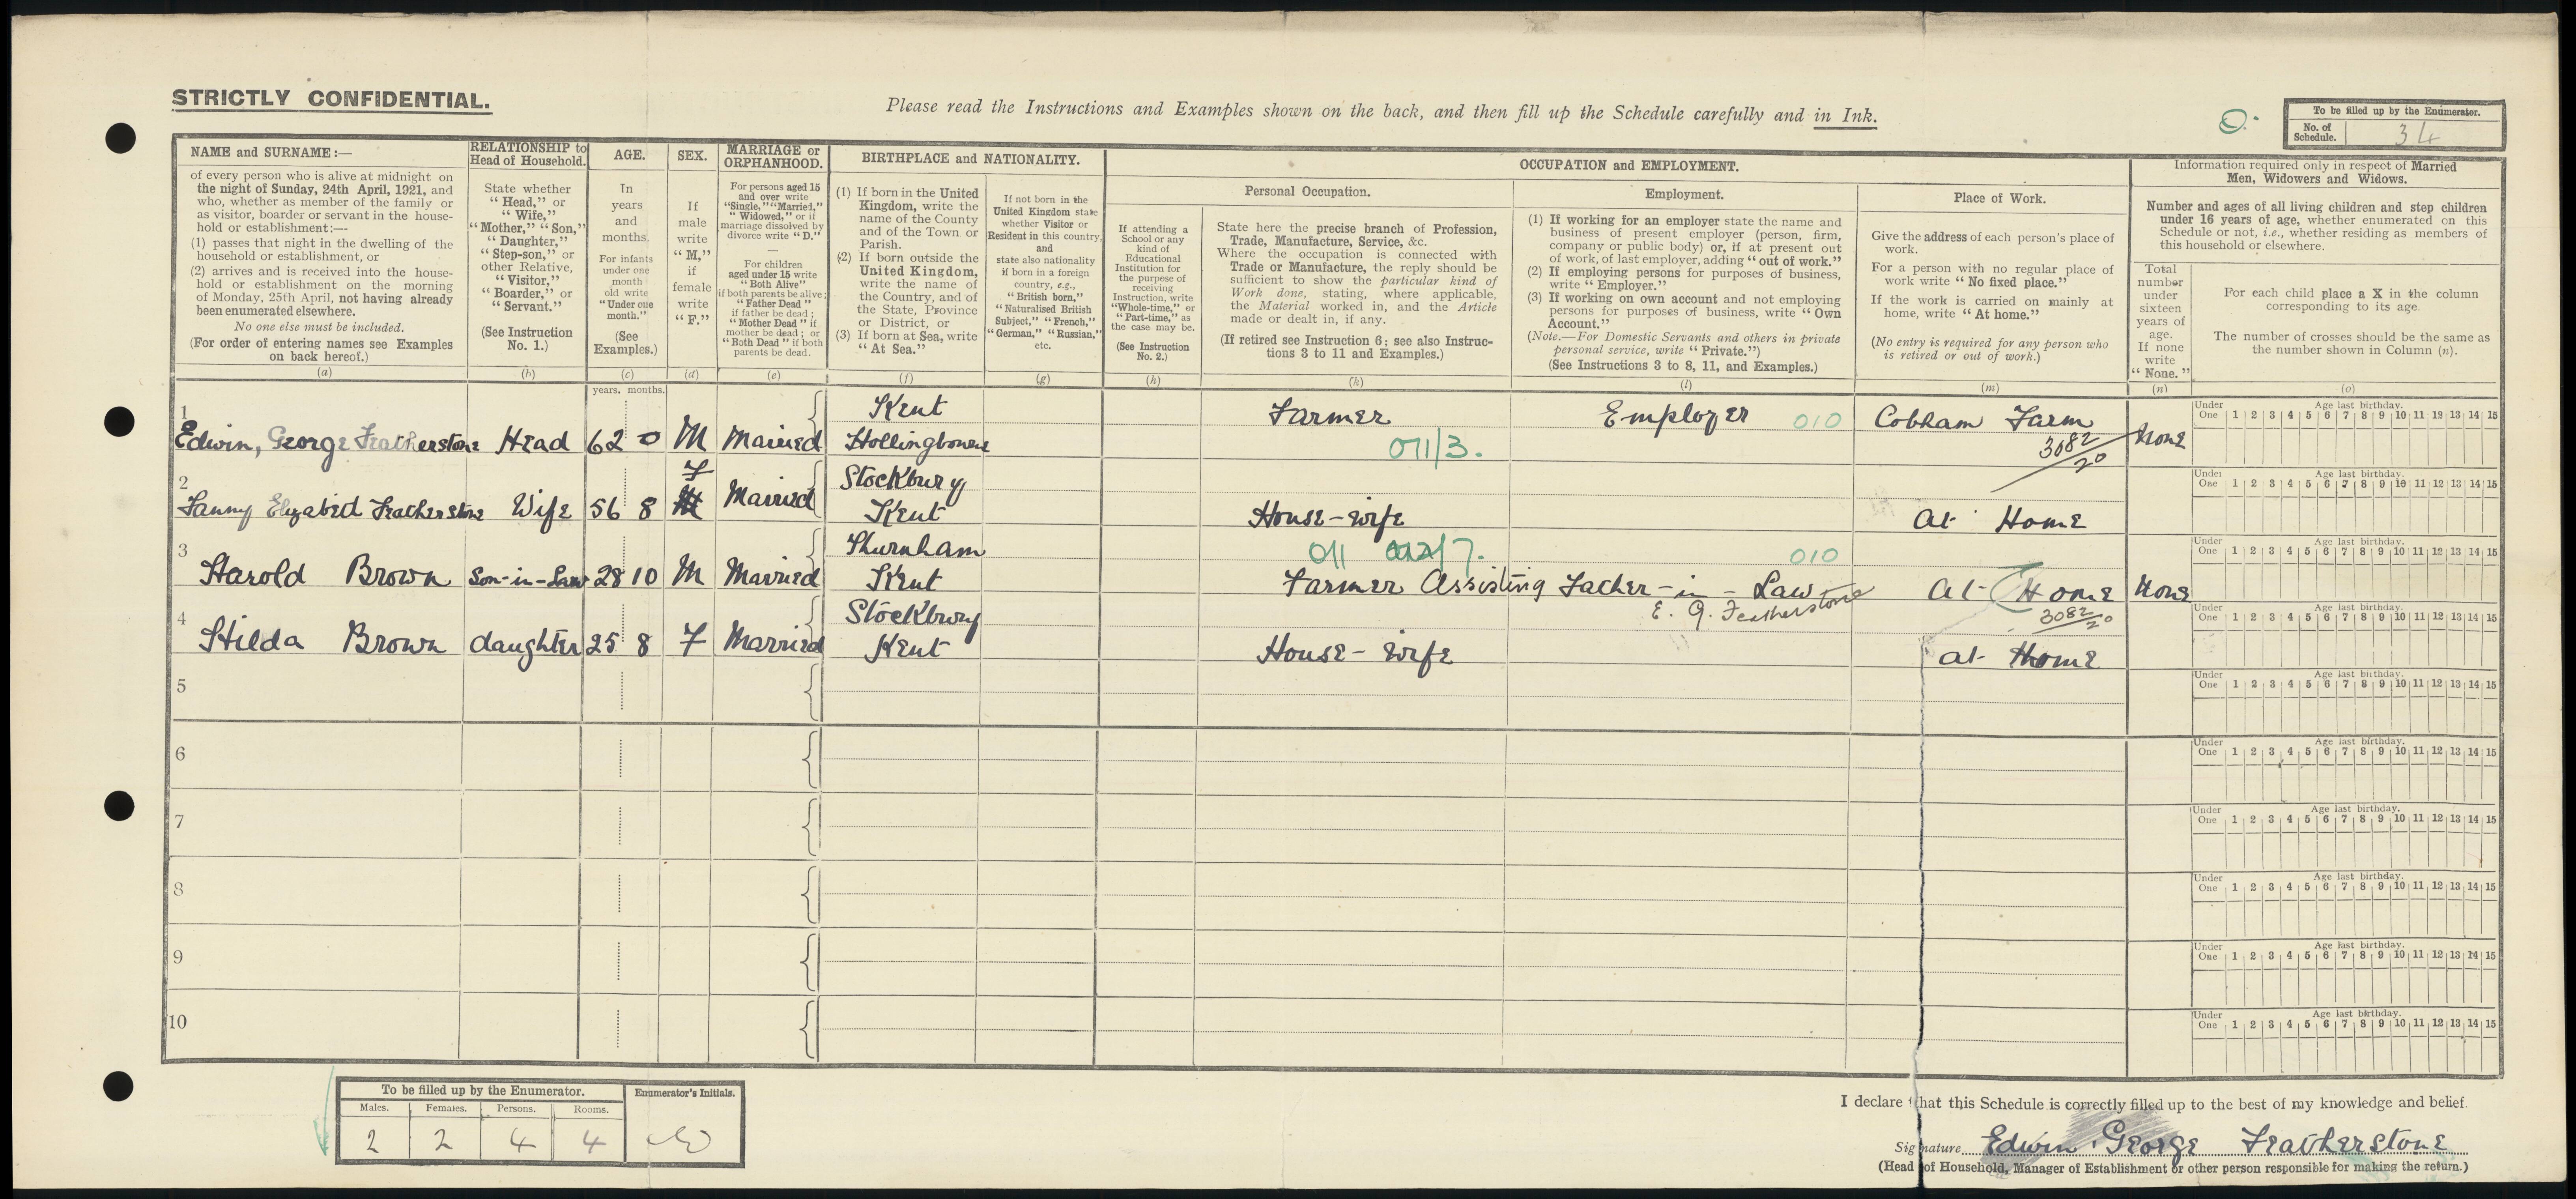 STRICTLY CONFIDENTIAL.
Please read the Instructions and Examples shown on the back, and then fill up the Schedule carefully and in Ink.
To be filled up by the Enumerator.
No. of Schedule. 34
NAME and SURNAME:—
of every person who is alive at midnight on
the night of Sunday, 24th April, 1921, and
who, whether as member of the family or
as visitor, boarder or servant in the house-
hold or establishment:—
(1) passes that night in the dwelling of the
household or establishment, or
(2) arrives and is received into the house-
hold or establishment on the morning
of Monday, 25th April, not having already
been enumerated elsewhere.
No one else must be included.
(For order of entering names see Examples
on back hereof.)
(a)
RELATIONSHIP to
Head of Household.
State whether
"Head," or
"Wife,"
"Mother," "Son,"
"Daughter,"
"Step-son," or
other Relative,
"Visitor,"
"Boarder," or
"Servant."
(See Instruction
No. 1.)
(b)
AGE.
In
years
and
months.
For infants
under one
month
old write
"Under one
month."
(See
Examples.)
(c)
SEX.
If
male
write
"M,"
if
female
write
"F."
(d)
MARRIAGE or
ORPHANHOOD.
For persons aged 15
and over write
"Single," "Married,"
"Widowed," or if
marriage dissolved by
divorce write "D."
—
For children
aged under 15 write
"Both Alive"
if both parents be alive;
"Father Dead"
if father be dead;
"Mother Dead" if
mother be dead; or
"Both Dead" if both
parents be dead.
(e)
BIRTHPLACE and NATIONALITY.
(1) If born in the United
Kingdom, write the
name of the County
and of the Town or
Parish.
(2) If born outside the
United Kingdom,
write the name of
the Country, and of
the State, Province
or District, or
(3) If born at Sea, write
"At Sea."
(f)
If not born in the
United Kingdom state
whether Visitor or
Resident in this country,
and
state also nationality
if born in a foreign
country, e.g.,
"British born,"
"Naturalised British
Subject," "French,"
"German," "Russian,"
etc.
(g)
OCCUPATION and EMPLOYMENT.
If attending a
School or any
kind of
Educational
Institution for
the purpose of
receiving
Instruction, write
"Whole-time," or
"Part-time," as
the case may be.
(See Instruction
No. 2.)
(h)
Personal Occupation.
State here the precise branch of Profession,
Trade, Manufacture, Service, &c.
Where the occupation is connected with
Trade or Manufacture, the reply should be
sufficient to show the particular kind of
Work done, stating, where applicable,
the Material worked in, and the Article
made or dealt in, if any.
(If retired see Instruction 6; see also Instruc-
tions 3 to 11 and Examples.)
(k)
Employment.
(1) If working for an employer state the name and
business of present employer (person, firm,
company or public body) or, if at present out
of work, of last employer, adding "out of work."
(2) If employing persons for purposes of business,
write "Employer."
(3) If working on own account and not employing
persons for purposes of business, write "Own
Account."
(Note.—For Domestic Servants and others in private
personal service, write "Private.")
(See Instructions 3 to 8, 11, and Examples.)
(l)
Place of Work.
Give the address of each person's place of
work.
For a person with no regular place of
work write "No fixed place."
If the work is carried on mainly at
home, write "At home."
(No entry is required for any person who
is retired or out of work.)
(m)
Information required only in respect of Married
Men, Widowers and Widows.
Number and ages of all living children and step children
under 16 years of age, whether enumerated on this
Schedule or not, i.e., whether residing as members of
this household or elsewhere.
Total
number
under
sixteen
years of
age.
If none
write
"None."
(n)
For each child place a X in the column
corresponding to its age.
The number of crosses should be the same as
the number shown in Column (n).
(o)
years. months.
1
Edwin, George Featherstone Head 62 0 M Married Kent Hollingbourne Farmer 011/3. Employer 010 Cobham Farm 3082/20 None
Under One 1 2 3 4 5 6 7 8 9 10 11 12 13 14 15 Age last birthday.
2
Fanny Elizabeth Featherstone Wife 56 8 F Married Stockbury Kent House-wife At Home
Under One 1 2 3 4 5 6 7 8 9 10 11 12 13 14 15 Age last birthday.
3
Harold Brown Son-in-Law 28 10 M Married Thurnham Kent 011 /7. 010 Farmer Assisting Father-in-Law E. G. Featherstone At Home 3082/20 None
Under One 1 2 3 4 5 6 7 8 9 10 11 12 13 14 15 Age last birthday.
4
Hilda Brown daughter 25 8 F Married Stockbury Kent House-wife at home
Under One 1 2 3 4 5 6 7 8 9 10 11 12 13 14 15 Age last birthday.
5
Under One 1 2 3 4 5 6 7 8 9 10 11 12 13 14 15 Age last birthday.
6
Under One 1 2 3 4 5 6 7 8 9 10 11 12 13 14 15 Age last birthday.
7
Under One 1 2 3 4 5 6 7 8 9 10 11 12 13 14 15 Age last birthday.
8
Under One 1 2 3 4 5 6 7 8 9 10 11 12 13 14 15 Age last birthday.
9
Under One 1 2 3 4 5 6 7 8 9 10 11 12 13 14 15 Age last birthday.
10
Under One 1 2 3 4 5 6 7 8 9 10 11 12 13 14 15 Age last birthday.
To be filled up by the Enumerator. Enumerator's Initials.
Males. Females. Persons. Rooms.
2 2 4 4
I declare that this Schedule is correctly filled up to the best of my knowledge and belief.
Signature Edwin George Featherstone
(Head of Household, Manager of Establishment or other person responsible for making the return.)